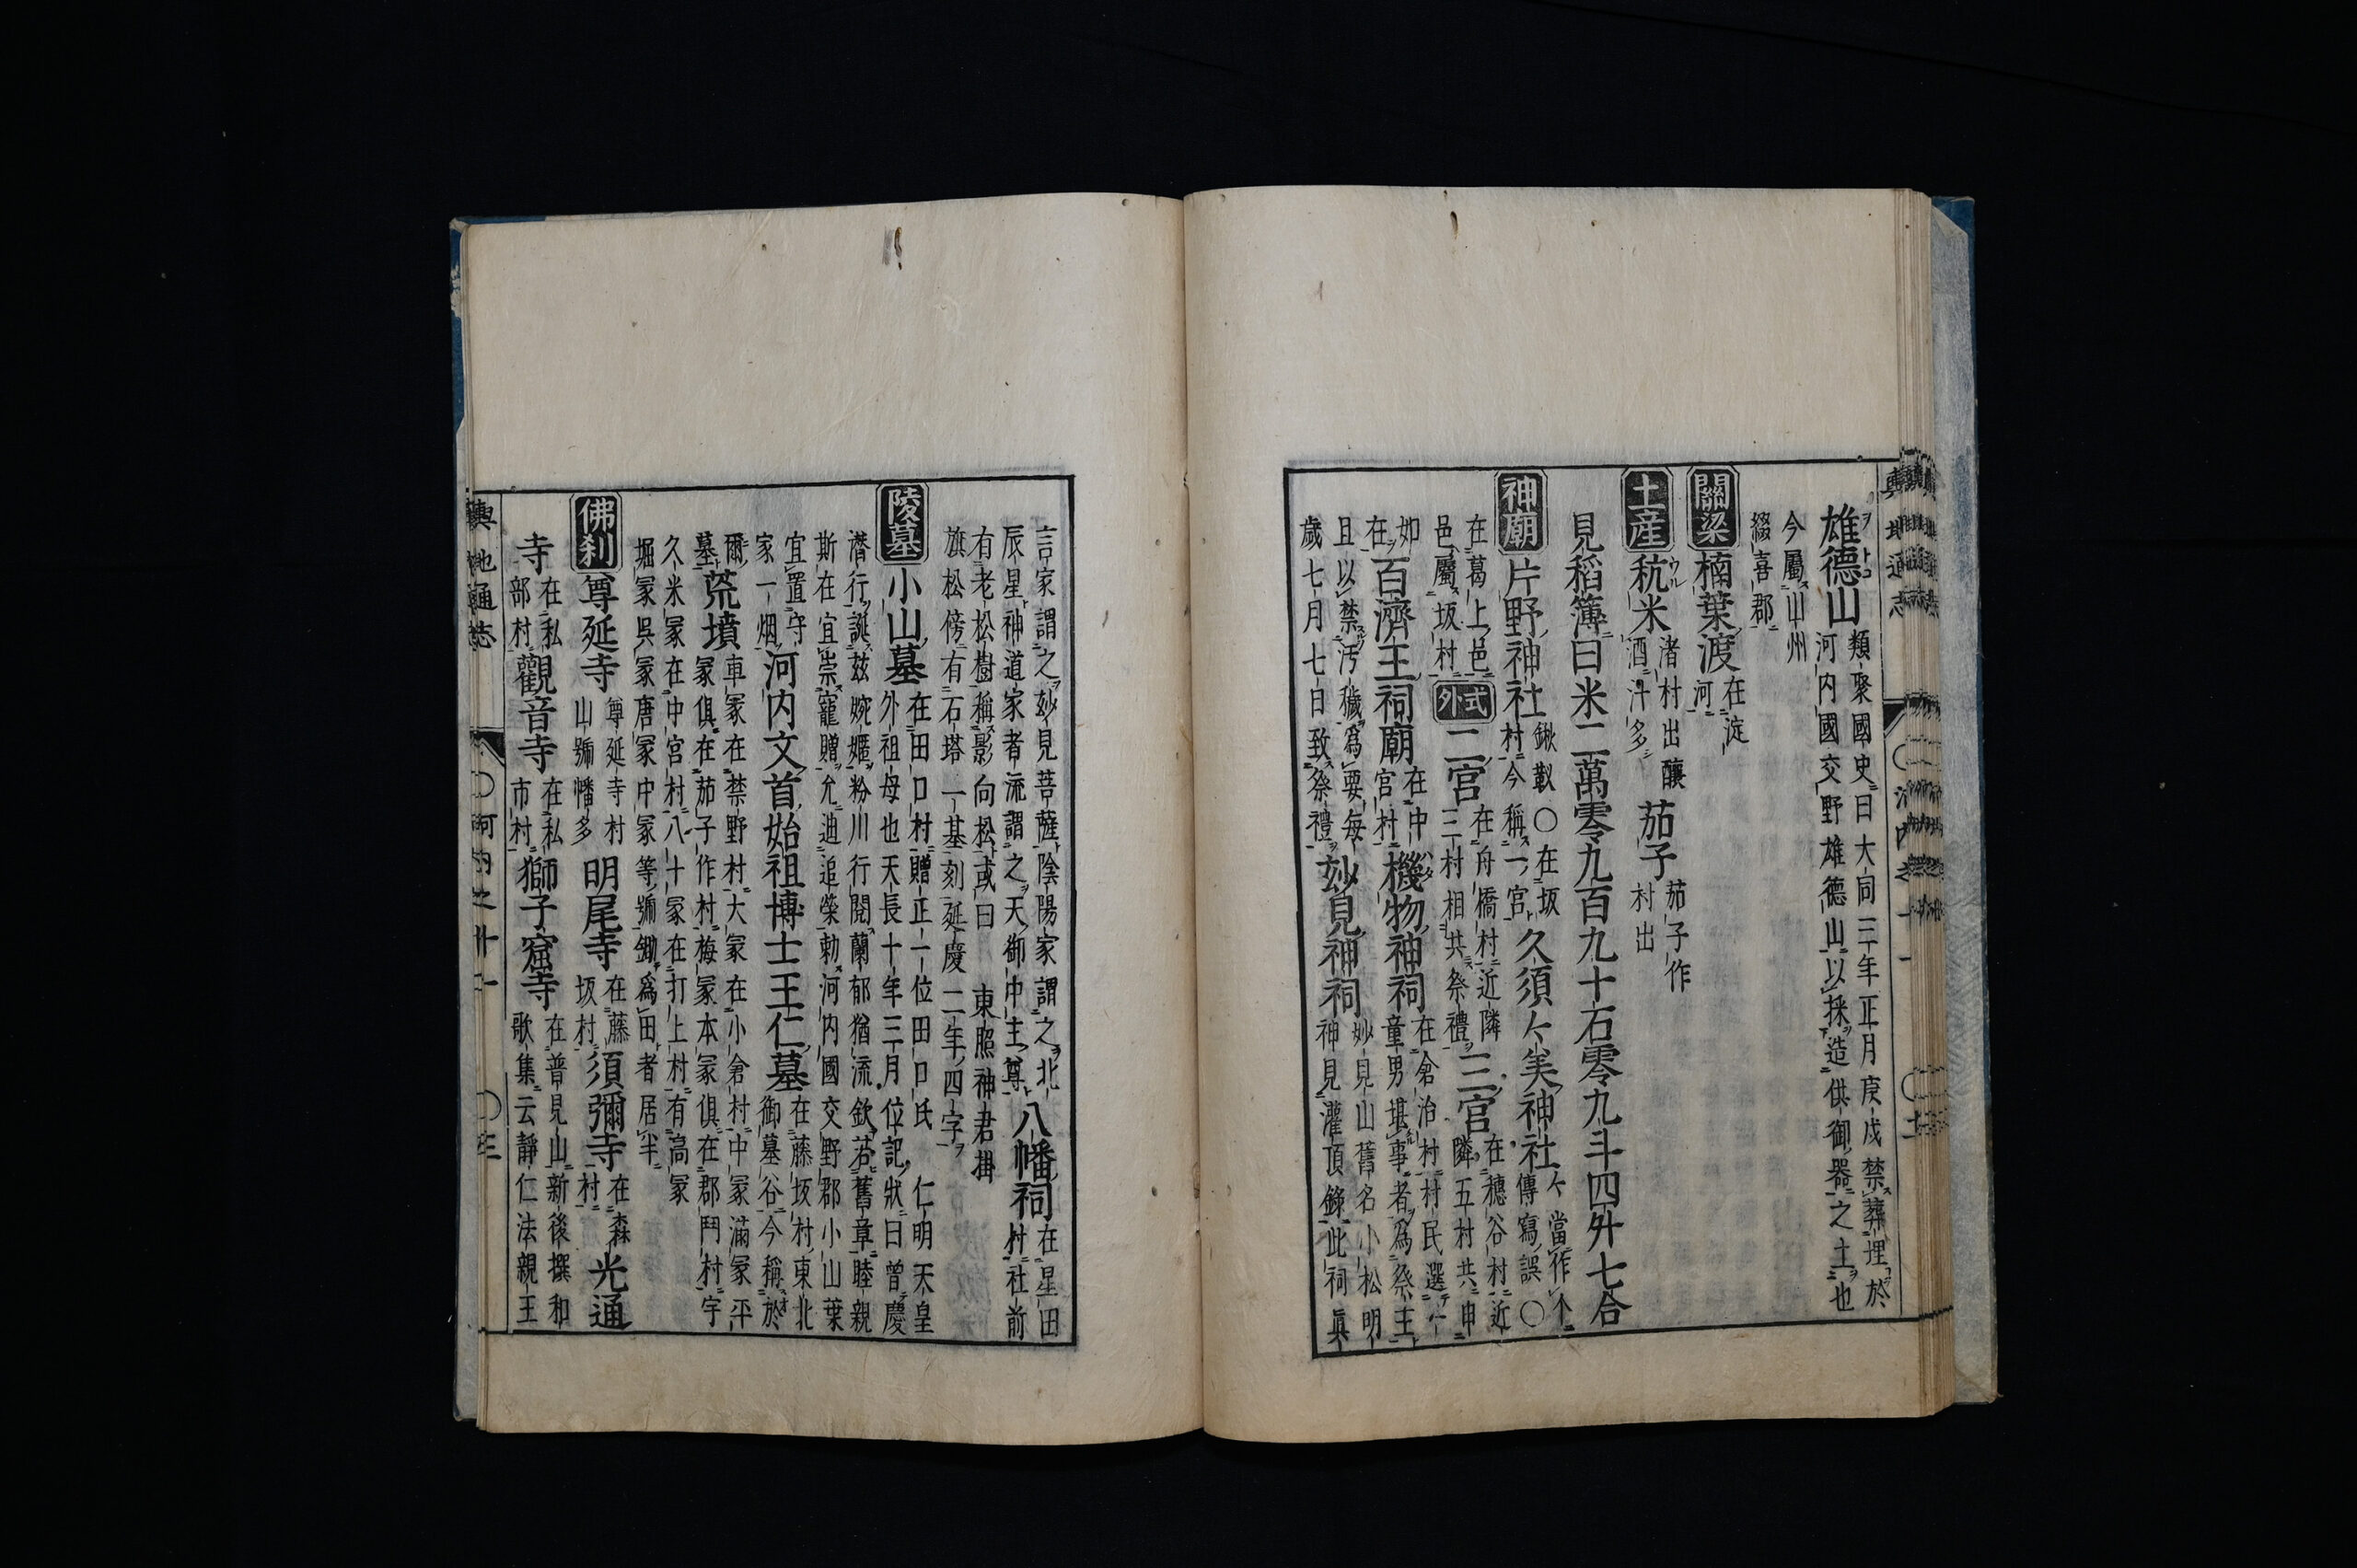 雄德山類聚國史曰大同三年正月庚戌禁葬埋於河内國交野雄德山以採造供御器之土也
今屬山州綴喜郡
關梁 楠葉渡在淀河
土産 秔米渚村出釀酒汁多 茄子茄子作村出
見稻簿曰米二萬零九百九十石零九斗四升七合
神廟 片野神社鍬靫〇在坂村今稱一宮 久須々美神社々當作个傳寫誤〇
在葛上邑邑屬坂村 式外 二宮在舟橋村近隣三村相共祭禮 三宮在穗谷村近隣五村共申
如在 百濟王祠廟在中宮村 機物神祠在倉治村村民選一童男堪事者爲祭主
且以禁汚穢爲要每歲七月七日致祭禮 妙見神祠妙見山舊名小松明神見灌頂錄此祠眞
言家謂之妙見菩薩陰陽家謂之北辰星神道家者流謂之天御中主尊 八幡祠在星田村社前
有老松樹稱影向松或曰東照神君掛旗松傍有石塔一基刻延慶二年四字
陵墓 小山墓在田口村贈正一位田口氏仁明天皇外祖母也天長十年三月位記狀曰曾慶
濳行誕玆婉嫕粉川行閲蘭郁猶流欽若舊章睦親斯在宜崇寵贈允迪追榮勅河内國交野郡小山葉
宜置守家一烟 河内文首始祖博士王仁墓在藤坂村東北御墓谷今稱於
爾墓 荒墳車冢在禁野村大冢在小倉村中冢滿冢平冢俱在茄子作村梅冢本冢俱在郡門村宇
久米冢在中宮村八十冢在打上村有高冢堀冢吳冢唐冢中冢等號鋤爲田者居半
佛刹 尊延寺尊延寺村山號幡多 明尾寺在藤坂村 須彌寺在森村 光通
寺在私部村 觀音寺在私市村 獅子窟寺在普見山新後撰和歌集云靜仁法親王
輿地通志 〇河内之十一 〇三